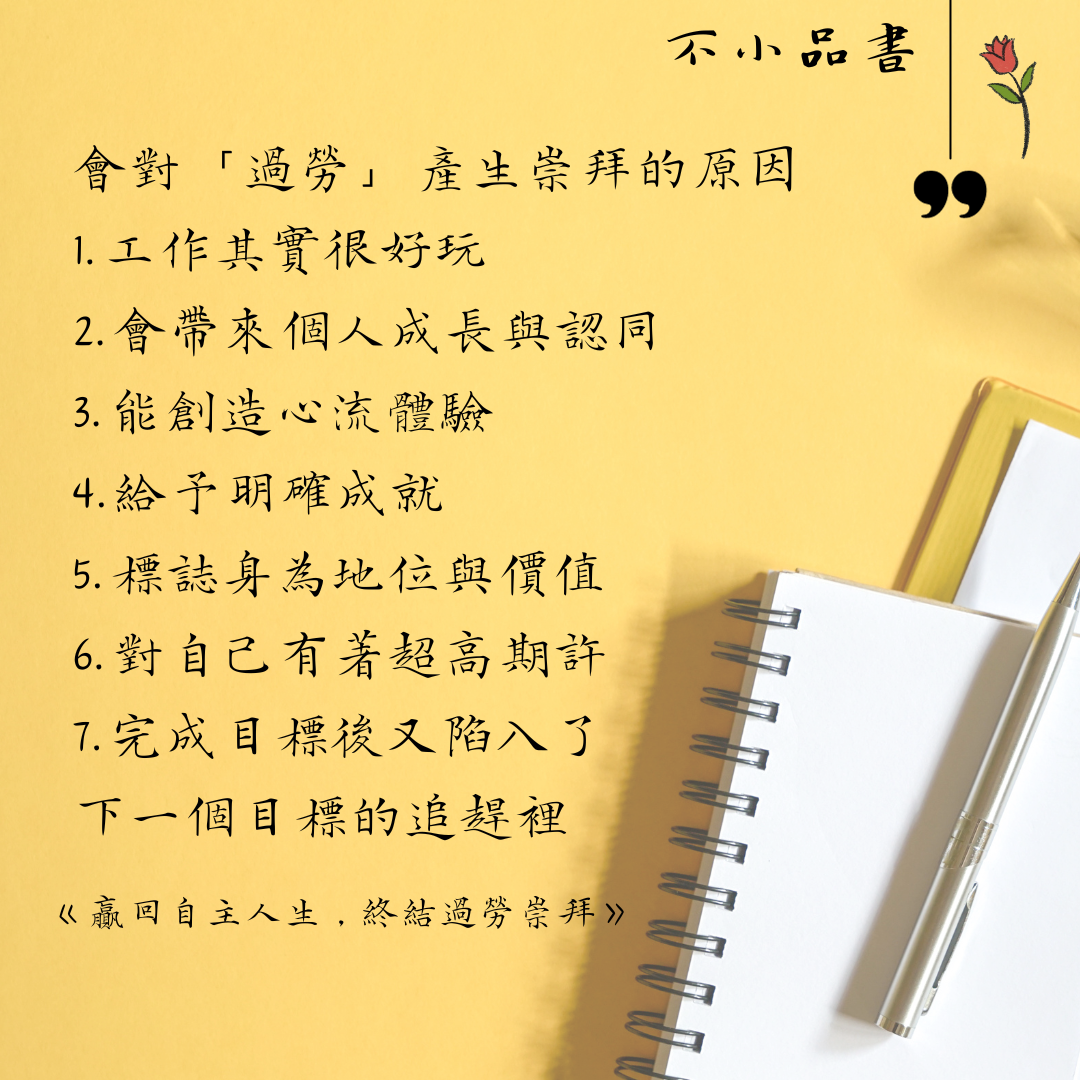 不小品書
會對「過勞」產生崇拜的原因
1.工作其實很好玩
2.會帶來個人成長與認同
3.能創造心流體驗
4.給予明確成就
5.標誌身為地位與價值
6.對自己有著超高期許
7.完成目標後又陷入了
下一個目標的追趕裡
《贏回自主人生，終結過勞崇拜》